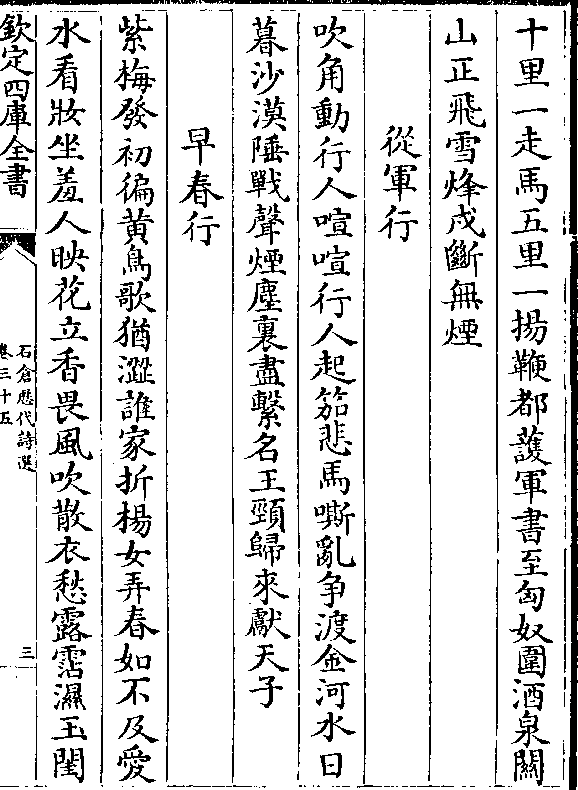 十里一走馬五里一揚鞭都䕶軍書至匈奴圍酒泉闗
山正飛雪烽戍斷無煙
從軍行
吹角動行人喧喧行人起笳悲馬嘶亂争渡金河水日
暮沙漠陲戰聲煙塵裏盡繫名王頸歸來獻天子
早春行
紫梅發初徧黄鳥歌猶澀誰家折楊女弄春如不及愛
水看妝坐羞人映花立香畏風吹散衣愁露霑濕玉閨
欽定四庫全書
石倉歴代詩選
卷三十五
三